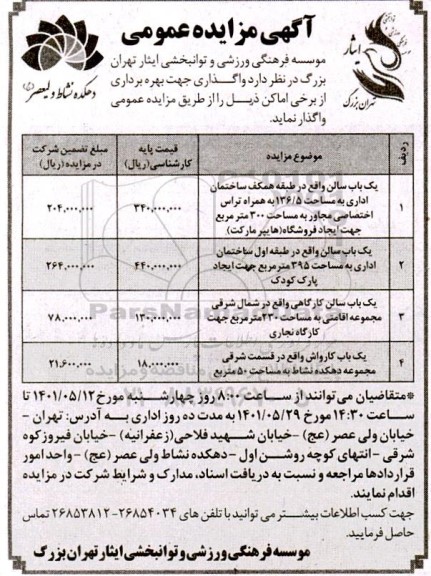 آگهی مزایده عمومی
ایثار
تهران بزرگ
دهکده نشاط ولیعصر
موسسه فرهنگی ورزشی و توانبخشی ایثار تهران
بزرگ در نظر دارد واگذاری جهت بهره برداری
از برخی اماکن ذیل را از طریق مزایده عمومی
واگذار نماید.
ردیف
موضوع مزایده
قیمت پایه
کارشناسی(ریال)
مبلغ تضمین شرکت
در مزایده (ریال)
۱
یک باب سالن واقع در طبقه همکف ساختمان
اداری به مساحت ۱۳۶/۵ به همراه تراس
اختصاصی مجاور به مساحت ۳۰۰ متر مربع
جهت ایجاد فروشگاه(هایپر مارکت)
۳۴۰,۰۰۰,۰۰۰
۲۰۴,۰۰۰,۰۰۰
۲
یک باب سالن واقع در طبقه اول ساختمان
اداری به مساحت ۳۹۵ متر مربع جهت ایجاد
پارک کودک
۴۴۰,۰۰۰,۰۰۰
۲۶۴,۰۰۰,۰۰۰
۳
یک باب سالن کارگاهی واقع در شمال شرقی
مجموعه اقامتی به مساحت ۲۳۰ متر مربع جهت
کارگاه نجاری
۱۳۰,۰۰۰,۰۰۰
۷۸,۰۰۰,۰۰۰
۴
یک باب کارواش واقع در قسمت شرقی
مجموعه دهکده نشاط به مساحت ۵۰ متر مربع
۱۸,۰۰۰,۰۰۰
۲۱,۶۰۰,۰۰۰
*متقاضیان می توانند از ساعت ۸:۰۰ روز چهارشنبه مورخ ۱۴۰۱/۰۵/۱۲ تا
ساعت ۱۴:۳۰ مورخ ۱۴۰۱/۰۵/۲۹ به مدت ده روز اداری به آدرس: تهران -
خیابان ولی عصر (عج) -خیابان شهید فلاحی(زعفرانیه) -خیابان فیروزکوه
شرقی -انتهای کوچه روشن اول -دهکده نشاط ولی عصر (عج) -واحد امور
قراردادها مراجعه و نسبت به دریافت اسناد، مدارک و شرایط شرکت در مزایده
اقدام نمایند.
جهت کسب اطلاعات بیشتر می توانید با تلفن های ۲۶۸۵۴۰۳۴-۲۶۸۵۳۸۱۲ تماس
حاصل فرمایید.
موسسه فرهنگی ورزشی و توانبخشی ایثار تهران بزرگ